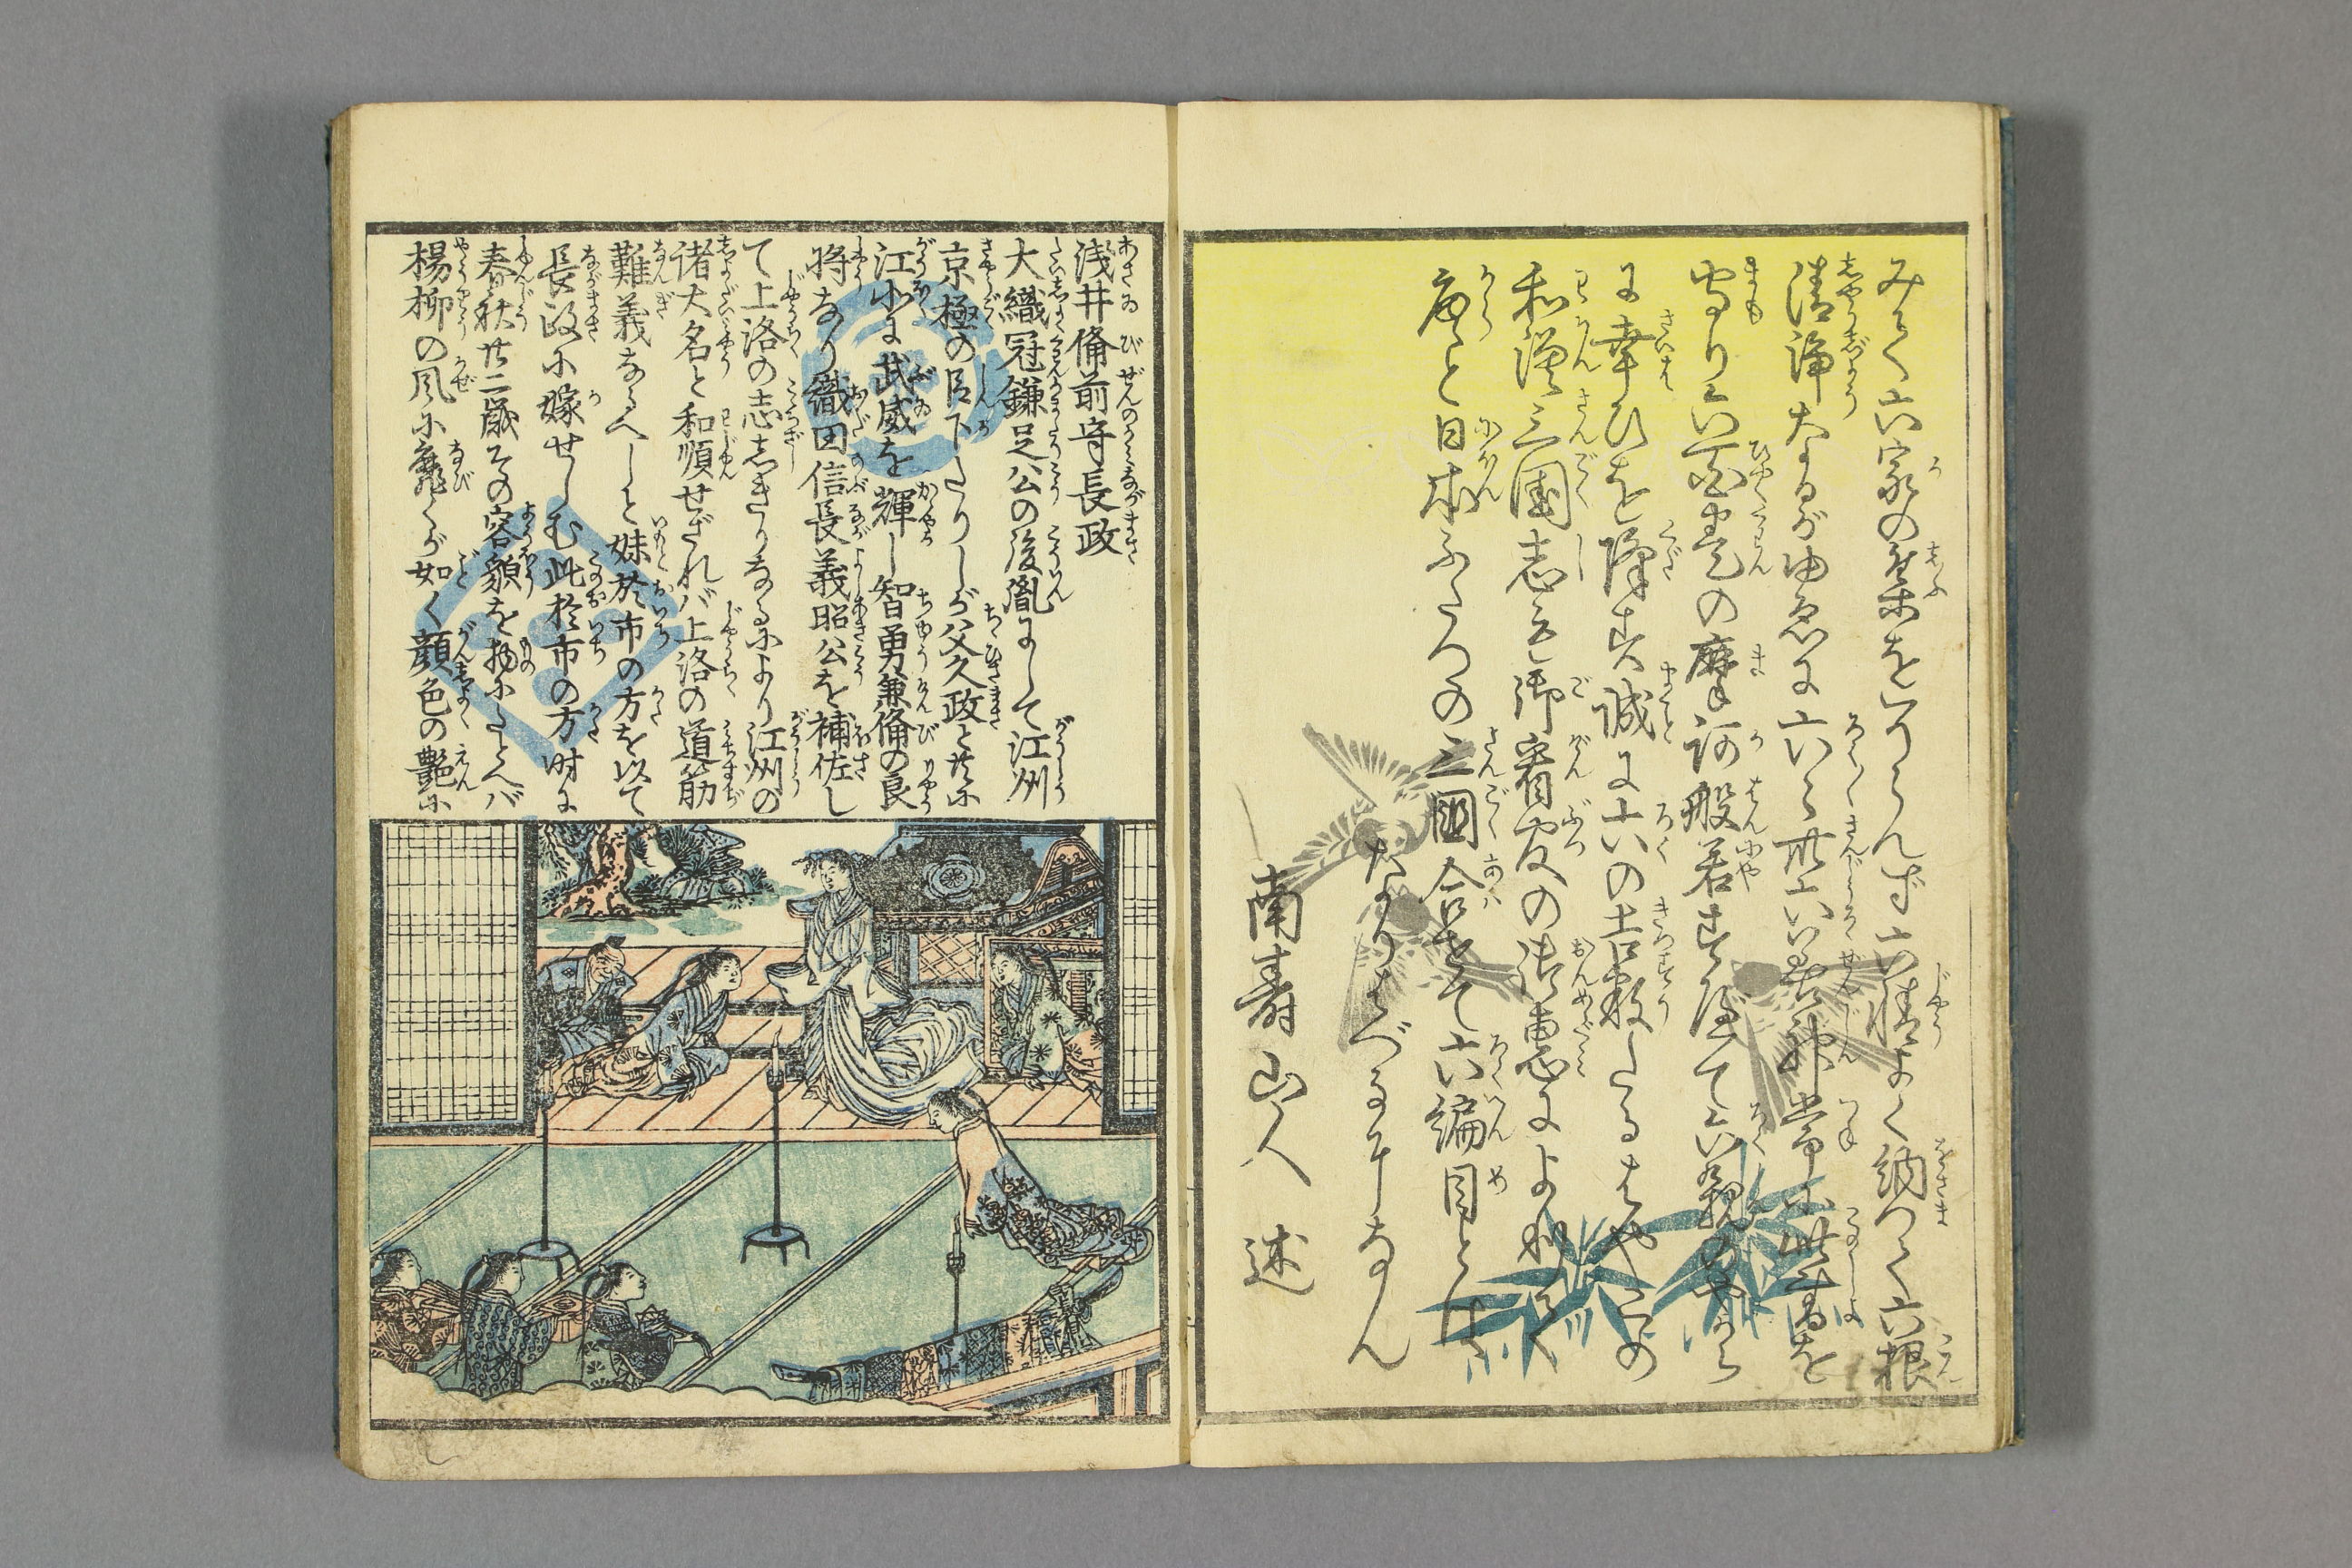 みて六家の集をつらんず六情よく納つて六根
清浄なるがゆゑに六々卅六善神常に此書を
守り六百巻の摩訶般若すゑて六親
に幸ひを降す誠に六の吉数たるはやこの
和漢三国志も御看官の御恵によりて
から と日本ふたつの三国合せて六編目とは
なりはべるになん
南寿山人 述
浅井備前守長政
大織冠鎌足公の後胤にして江州
京極の臣下たりしが父久政と共に
江北に武威を輝し智勇兼備の良
将なり織田信長義昭公を補佐し
て上洛の志しきりなるにより江州の
諸大名と和順せざれバ上洛の道筋
難義なるべしと妹於市の方を以て
長政に嫁せしむ此於市の方時に
春秋廿二歳その容貌を物にたとへバ
楊柳の風に靡くが如く顔色の艶に